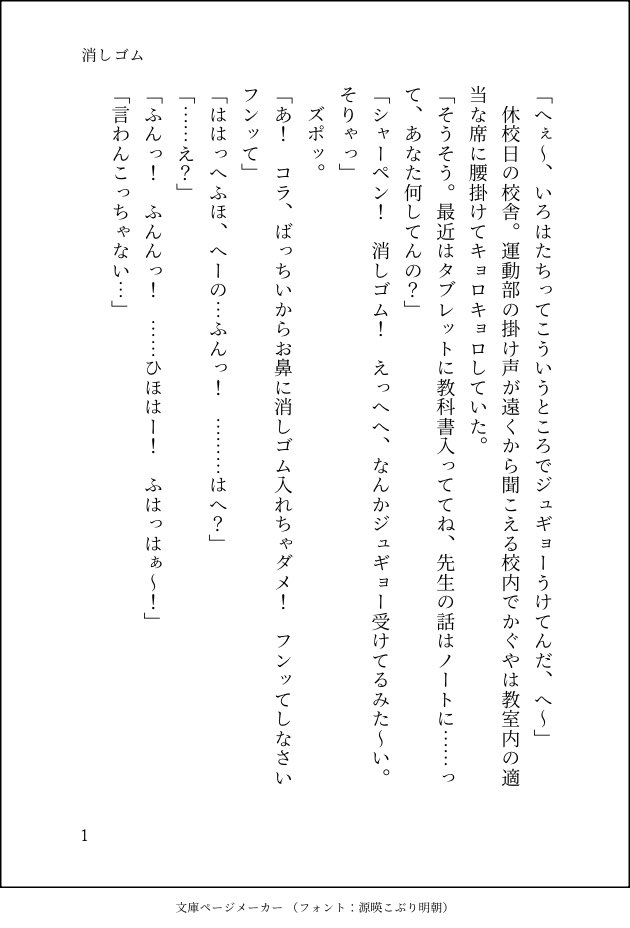 消しゴム
「へぇ～、いろはたちってこういうところでジュギョーうけてんだ、へ～」
　休校日の校舎。運動部の掛け声が遠くから聞こえる校内でかぐやは教室内の適
当な席に腰掛けてキョロキョロしていた。
「そうそう。最近はタブレットに教科書入っててね、先生の話はノートに……っ
て、あなた何してんの？」
「シャーペン！　消しゴム！　えっへへ、なんかジュギョー受けてるみた～い。
そりゃっ」
　ズポッ。
「あ！　コラ、ばっちいからお鼻に消しゴム入れちゃダメ！　フンッてしなさい
フンッて」
「ははっへふほ、へーの…ふんっ！　………はへ？」
「……え？」
「ふんっ！　ふんんっ！　……ひほはー！　ふはっはぁ～！」
「言わんこっちゃない…」
1
文庫ページメーカー（フォント：源暎こぶり明朝）